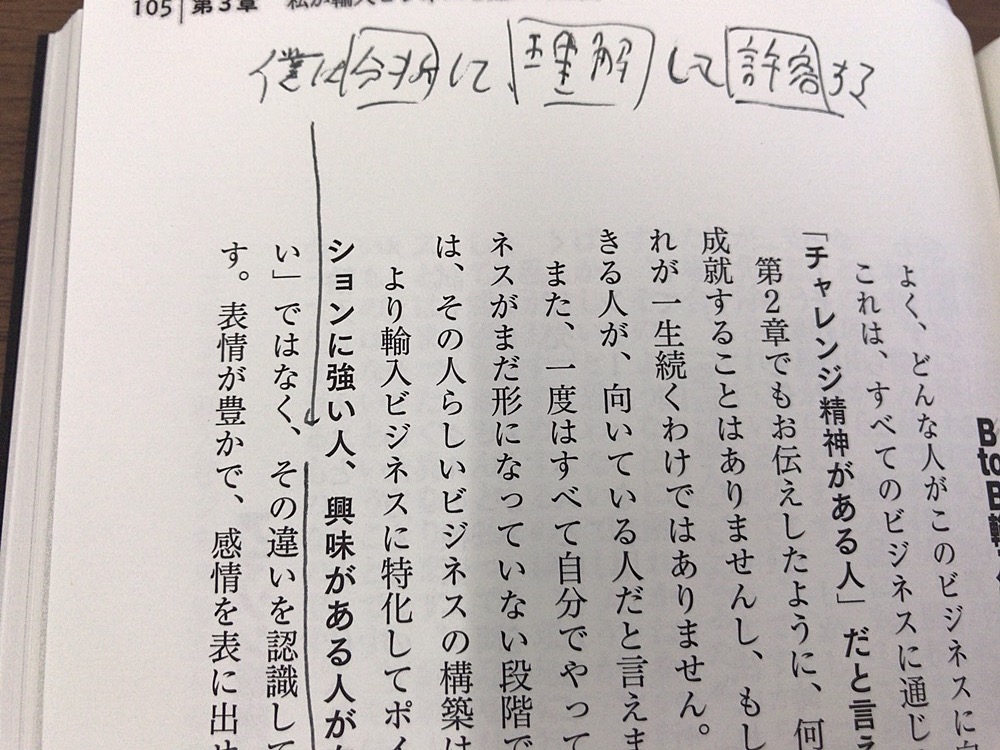 105 第3章
僕は分析して、理解して許容する
よく、どんな人がこのビジネスに
これは、すべてのビジネスに通じ
「チャレンジ精神がある人」だと言え
第2章でもお伝えしたように、何
成就することはありませんし、もし
れが一生続くわけではありません。
きる人が、向いている人だと言えま
また、一度はすべて自分でやって
ネスがまだ形になっていない段階で
は、その人らしいビジネスの構築は
より輸入ビジネスに特化してポイ
ションに強い人、興味がある人が
い」ではなく、その違いを認識して
す。表情が豊かで、感情を表に出